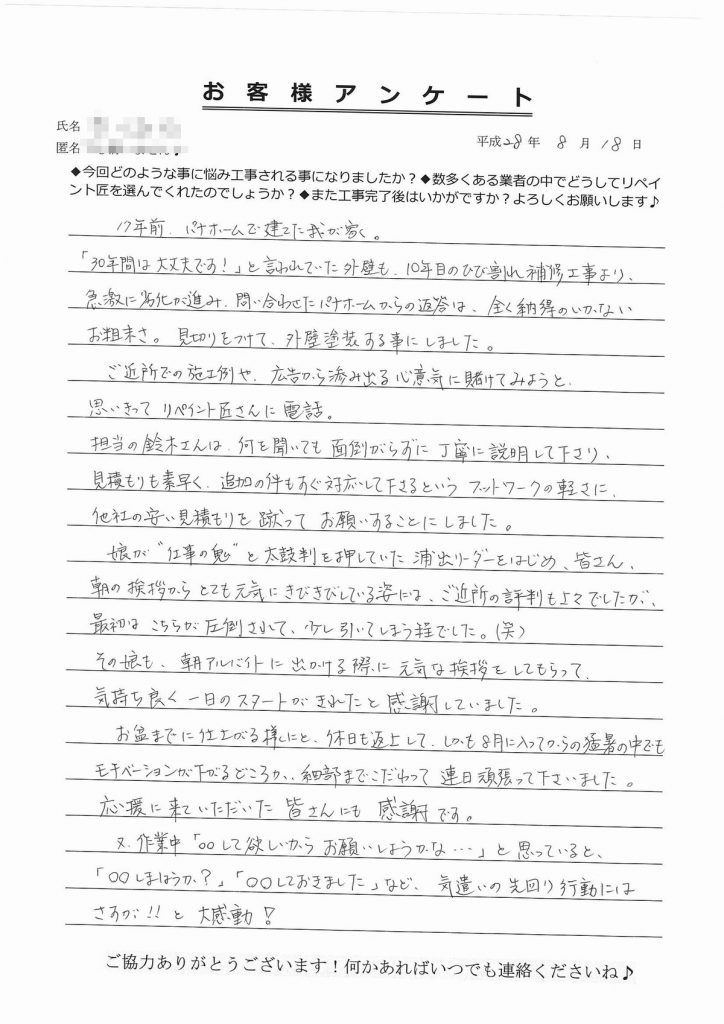 お客様アンケート
氏名
匿名
平成28年 8月18日
◆今回どのような事に悩み工事される事になりましたか？◆数多くある業者の中でどうしてリペイ
ント匠を選んでくれたのでしょうか？◆また工事完了後はいかがですか？よろしくお願いします♪
17年前、パナホームで建てた我が家。
「30年間は大丈夫です！」と言われていた外壁も、10年目のひび割れ補修工事より、
急激に劣化が進み、問い合わせたパナホームからの返答は、全く納得のいかない
お粗末さ。見切りをつけて、外壁塗装する事にしました。
ご近所での施工例や、広告から滲み出る心意気に賭けてみようと、
思いきってリペイント匠さんに電話。
担当の鈴木さんは、何を聞いても面倒がらずに丁寧に説明して下さり、
見積もりも素早く、追加の件もすぐ対応して下さるというフットワークの軽さに、
他社の安い見積もりを蹴ってお願いすることにしました。
娘が"仕事の鬼"と太鼓判を押していた浦出リーダーをはじめ、皆さん、
朝の挨拶からとても元気にきびきびしている姿には、ご近所の評判も上々でしたが、
最初はこちらが圧倒されて、少し引いてしまう程でした。(笑)
その娘も、朝アルバイトに出かける際に元気な挨拶をしてもらって、
気持ち良く一日のスタートがきれたと感謝していました。
お盆までに仕上がる様にと、休日も返上して、しかも8月に入ってからの猛暑の中でも
モチベーションが下がるどころか、細部までこだわって連日頑張って下さいました。
応援に来ていただいた皆さんにも感謝です。
又、作業中「○○して欲しいからお願いしようかな…」と思っていると、
「○○しましょうか？」「○○しておきました」など、気遣いの先回り行動には
さすが！！と大感動！
ご協力ありがとうございます！何かあればいつでも連絡くださいね♪